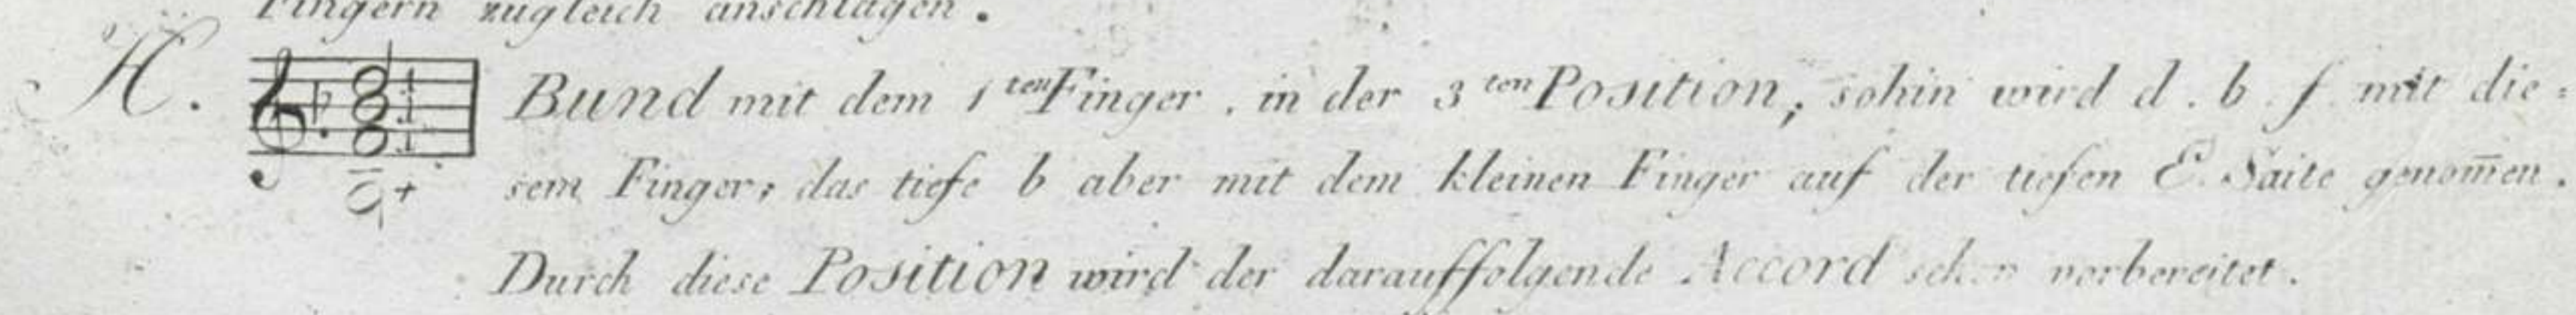 Fingern zugleich anschlagen.
H. Bund mit dem 1ten Finger. in der 3ten Position, sohin wird d. b. f. mit die=
sem Finger, das tiefe b aber mit dem kleinen Finger auf der tiefen E. Saite genom̅en.
Durch diese Position wird der darauffolgende Accord schon vorbereitet.